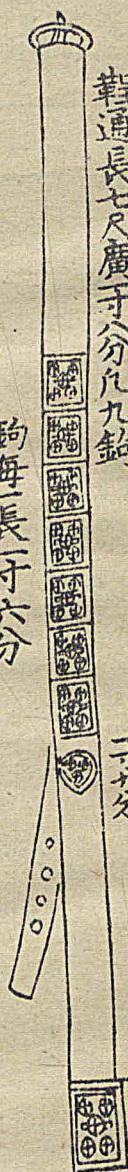 鞓通長七尺廣一寸八分凡九銙
銙每一長一寸六分